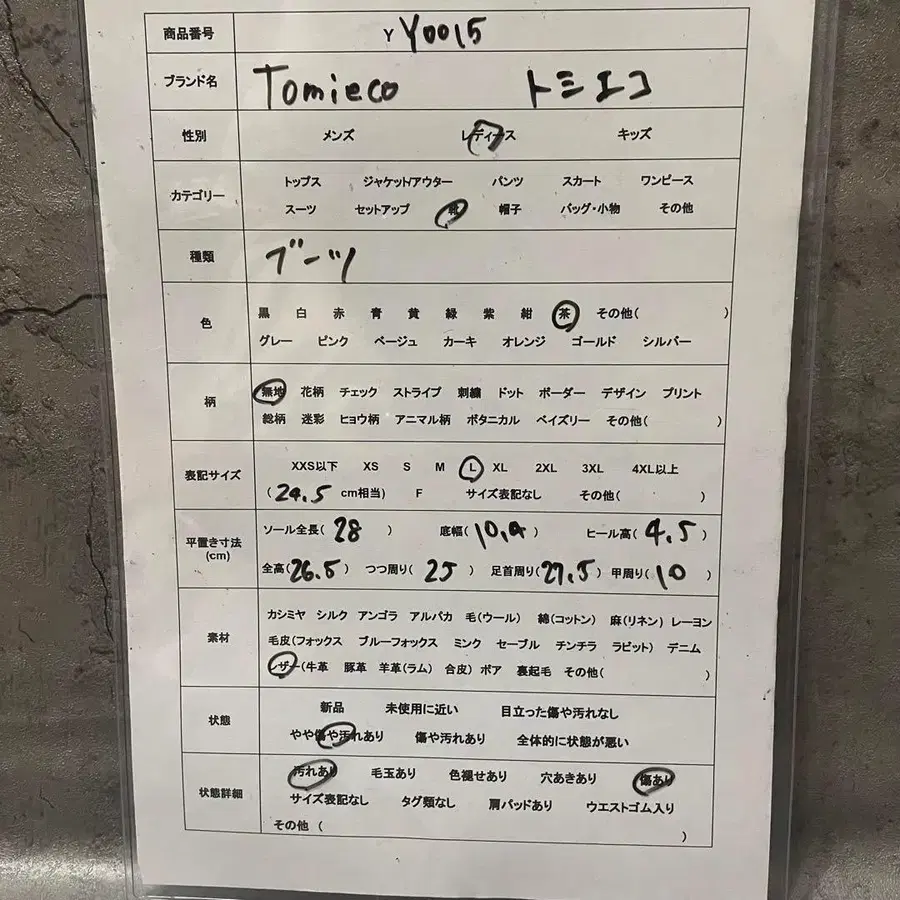 商品番号 Y Y0015
ブランド名 Tomieco トミエコ
性別 メンズ レディース キッズ
カテゴリー
トップス ジャケット/アウター パンツ スカート ワンピース
スーツ セットアップ 靴 帽子 バッグ・小物 その他
種類 ブーツ
色
黒 白 赤 青 黄 緑 紫 紺 茶 その他( )
グレー ピンク ベージュ カーキ オレンジ ゴールド シルバー
柄
無地 花柄 チェック ストライプ 刺繍 ドット ボーダー デザイン プリント
総柄 迷彩 ヒョウ柄 アニマル柄 ボタニカル ペイズリー その他( )
表記サイズ
XXS以下 XS S M L XL 2XL 3XL 4XL以上
(24.5 cm相当) F サイズ表記なし その他( )
平置き寸法
(cm)
ソール全長( 28 ) 底幅( 10.4 ) ヒール高( 4.5 )
全高( 26.5 ) つつ周り( 25 ) 足首周り( 27.5 ) 甲周り( 10 )
素材
カシミヤ シルク アンゴラ アルパカ 毛(ウール) 綿(コットン) 麻(リネン) レーヨン
毛皮(フォックス ブルーフォックス ミンク セーブル チンチラ ラビット) デニム
レザー(牛革 豚革 羊革(ラム) 合皮) ボア 裏起毛 その他( )
状態
新品 未使用に近い 目立った傷や汚れなし
やや傷や汚れあり 傷や汚れあり 全体的に状態が悪い
状態詳細
汚れあり 毛玉あり 色褪せあり 穴あきあり 傷あり
サイズ表記なし タグ類なし 肩パッドあり ウエストゴム入り
その他 ( )